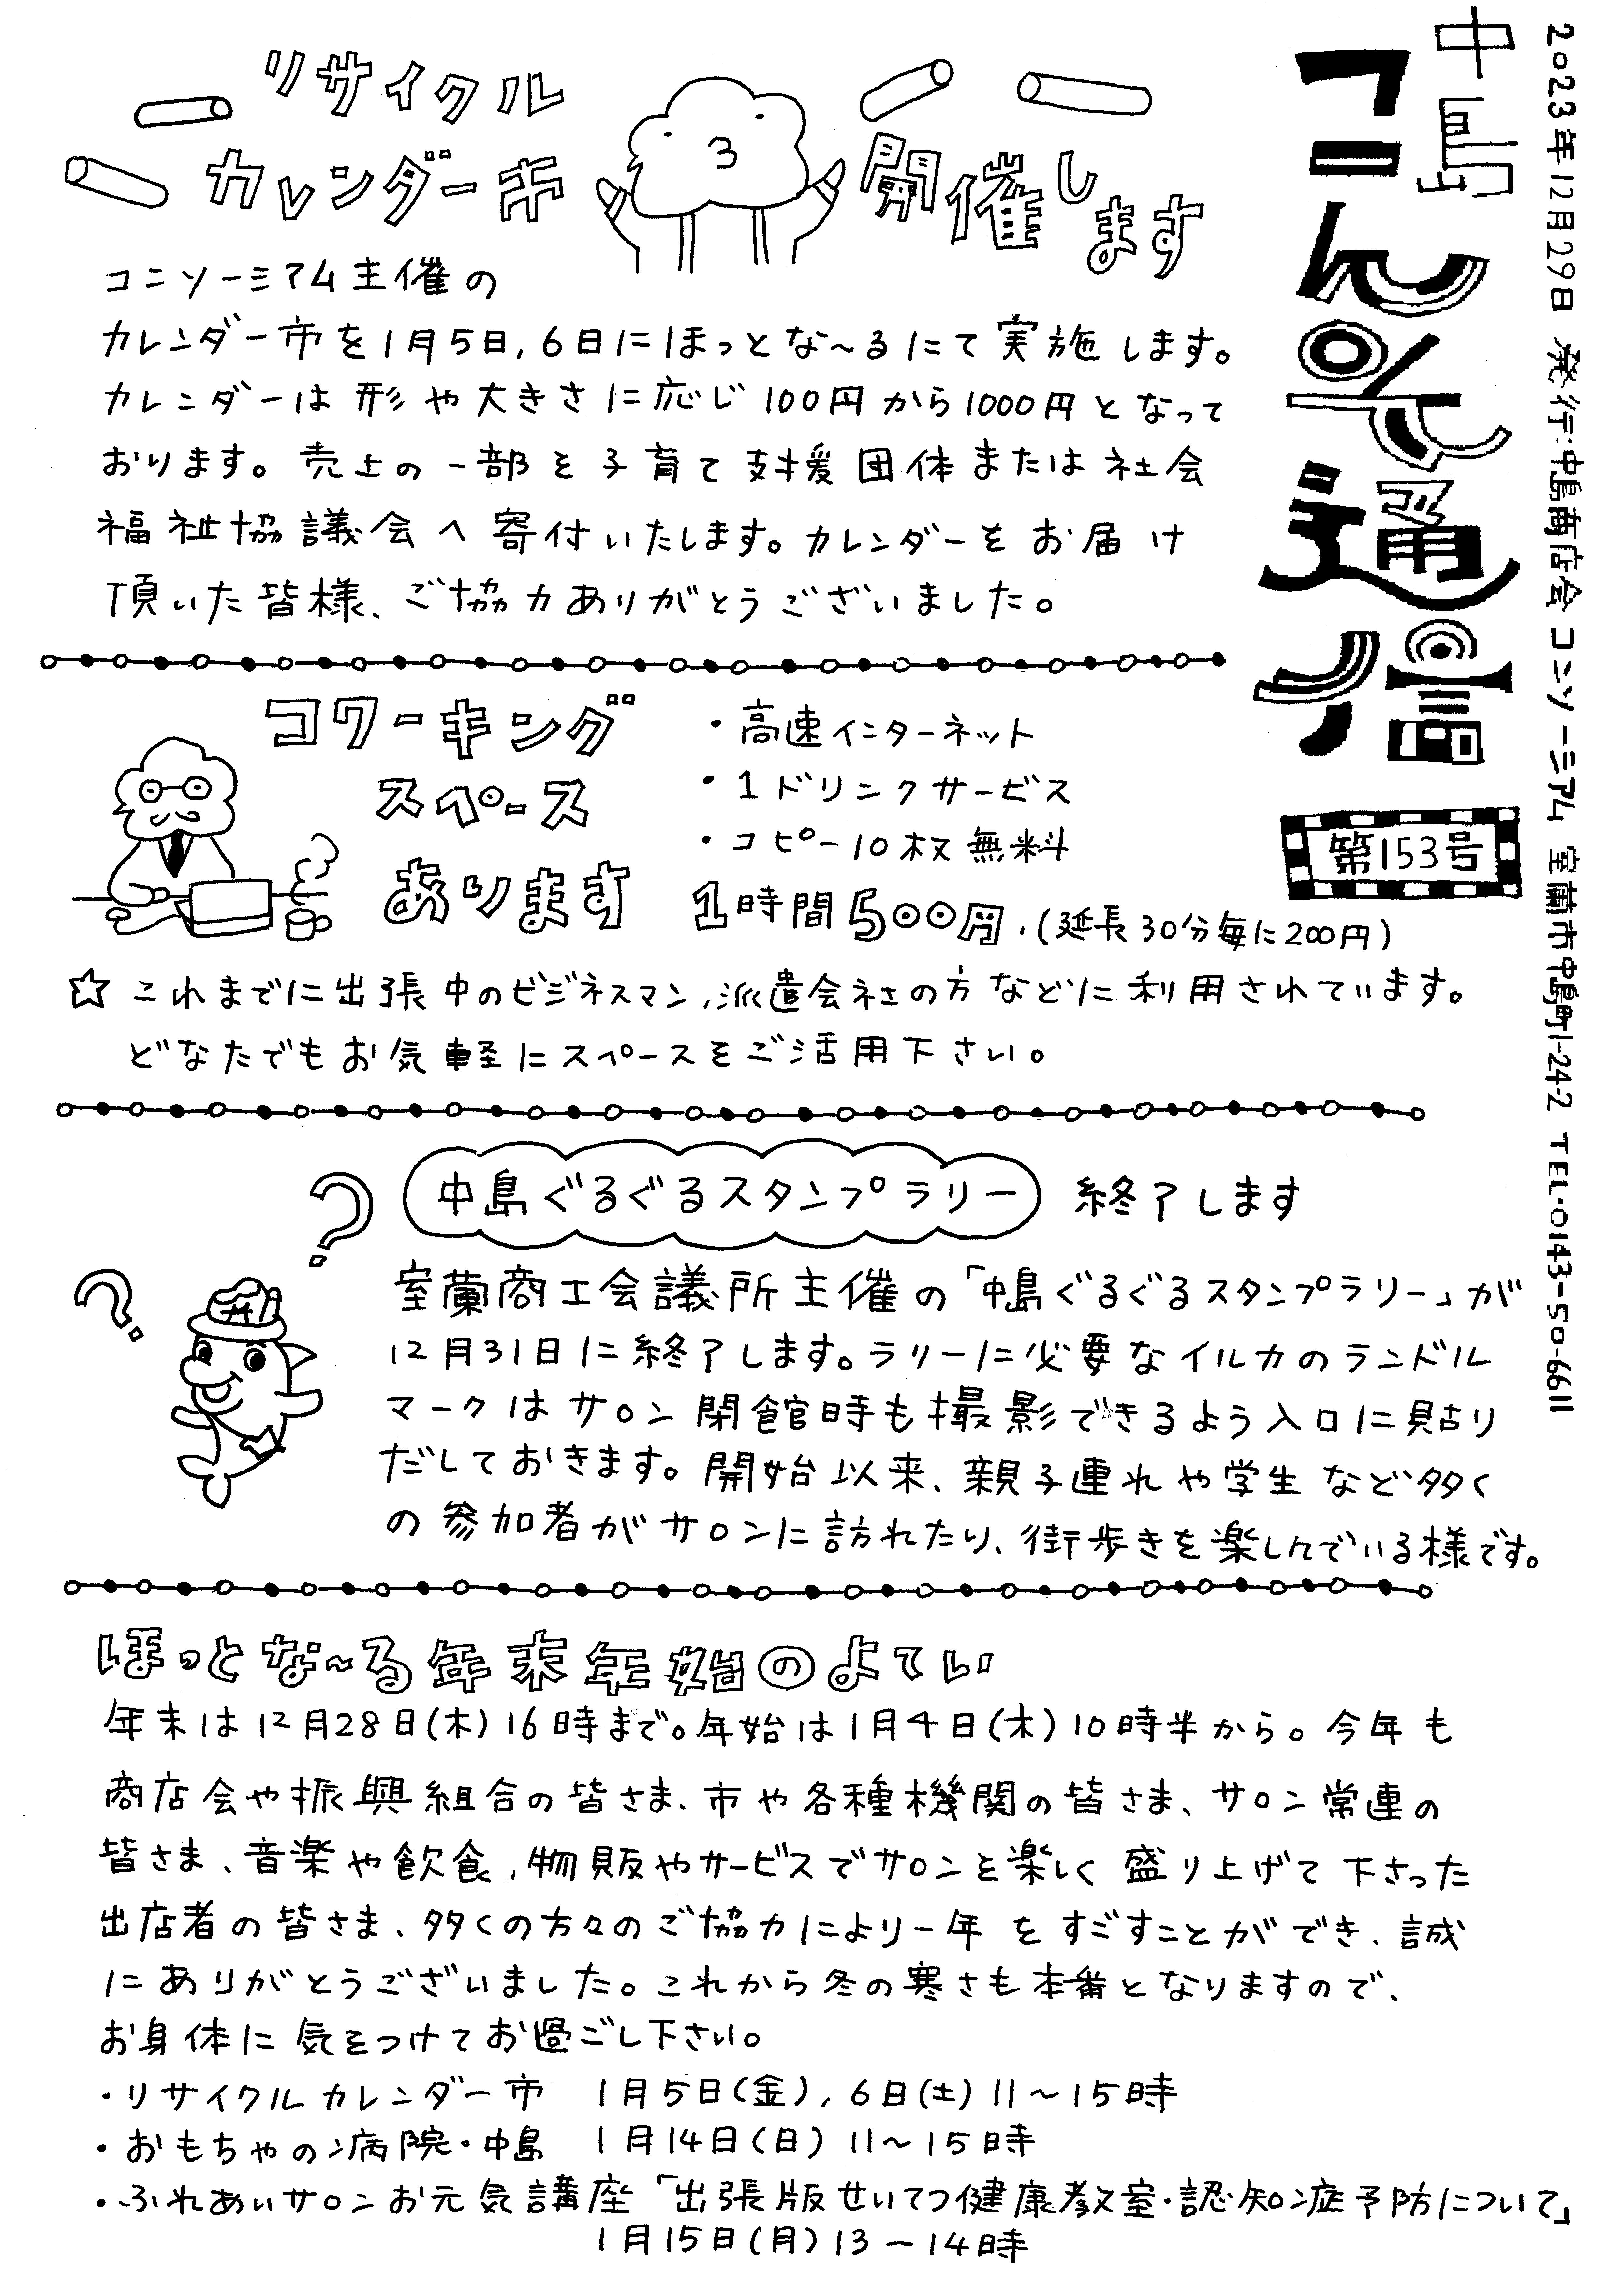 2023年12月29日 発行:中島商店会コンソーシアム 室蘭市中島町1-24-2 TEL・0143-50-6611
中島
コんそ通信
第153号
リサイクル
カレンダー市 開催します
コンソーシアム主催の
カレンダー市を1月5日,6日にほっとな〜るにて実施します。
カレンダーは形や大きさに応じ100円から1000円となって
おります。売上の一部を子育て支援団体または社会
福祉協議会へ寄付いたします。カレンダーをお届け
頂いた皆様、ご協力ありがとうございました。
コワーキング
スペース
あります
・高速インターネット
・1ドリンクサービス
・コピー10枚無料
1時間500円.(延長30分毎に200円)
☆これまでに出張中のビジネスマン,派遣会社の方などに利用されています。
どなたでもお気軽にスペースをご活用下さい。
中島ぐるぐるスタンプラリー 終了します
室蘭商工会議所主催の「中島ぐるぐるスタンプラリー」が
12月31日に終了します。ラリーに必要なイルカのランドル
マークはサロン閉館時も撮影できるよう入口に貼り
だしておきます。開始以来、親子連れや学生など多く
の参加者がサロンに訪れたり、街歩きを楽しんでいる様です。
ほっとな〜る年末年始のよてい
年末は12月28日(木)16時まで。年始は1月4日(木)10時半から。今年も
商店会や振興組合の皆さま、市や各種機関の皆さま、サロン常連の
皆さま、音楽や飲食,物販やサービスでサロンを楽しく盛り上げて下さった
出店者の皆さま、多くの方々のご協力により一年をすごすことができ、誠
にありがとうございました。これから冬の寒さも本番となりますので、
お身体に気をつけてお過ごし下さい。
・リサイクルカレンダー市 1月5日(金),6日(土)11〜15時
・おもちゃの病院・中島 1月14日(日)11〜15時
・ふれあいサロンお元気講座「出張版せいてつ健康教室・認知症予防について」
1月15日(月)13ー14時